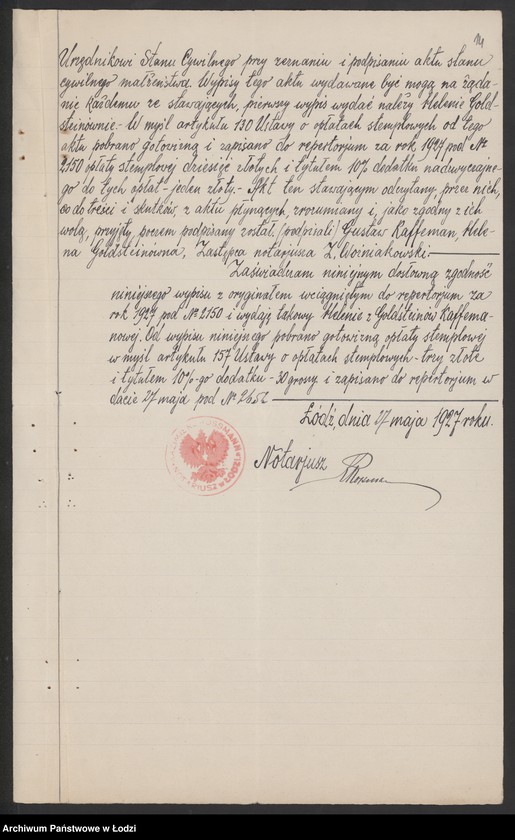 Urzędnikowi Stanu Cywilnego przy zeznaniu i podpisaniu aktu stanu
cywilnego małżeństwa. Wypisy tego aktu wydawane być mogą na żąda-
nie każdemu ze stawających, pierwszy wypis wydać należy Helenie Gold-
steinównie.- W myśl artykułu 130 Ustawy o opłatach stemplowych od tego
aktu pobrano gotowizną i zapisano do repertorjum za rok 1927 pod №
2150 opłaty stemplowej dziesięć złotych i tytułem 10% dodatku nadzwyczajne-
go do tych opłat - jeden złoty.- Akt ten stawającym odczytany, przez nich,
co do treści i skutków, z aktu płynących, zrozumiany i, jako zgodny z ich
wolą, przyjęty, poczem podpisany został. (podpisali) Gustaw Kaffeman, Hele-
na Goldsteinówna, Zastępca notarjusza Z. Woźniakowski.
Zaświadczam niniejszym dosłowną zgodność
niniejszego wypisu z oryginałem wciągniętym do repertorjum za
rok 1927 pod № 2150 i wydaję takowy Helenie z Goldsteinów Kaffema-
nowej. Od wypisu niniejszego pobrano gotowizną opłaty stemplowej
w myśl artykułu 157 Ustawy o opłatach stemplowych - trzy złote
i tytułem 10%-go dodatku - 30 groszy i zapisano do repertorjum w
dacie 27 maja pod №
Łódź, dnia 27 maja 1927 roku.
Notarjusz
Archiwum Państwowe w Łodzi